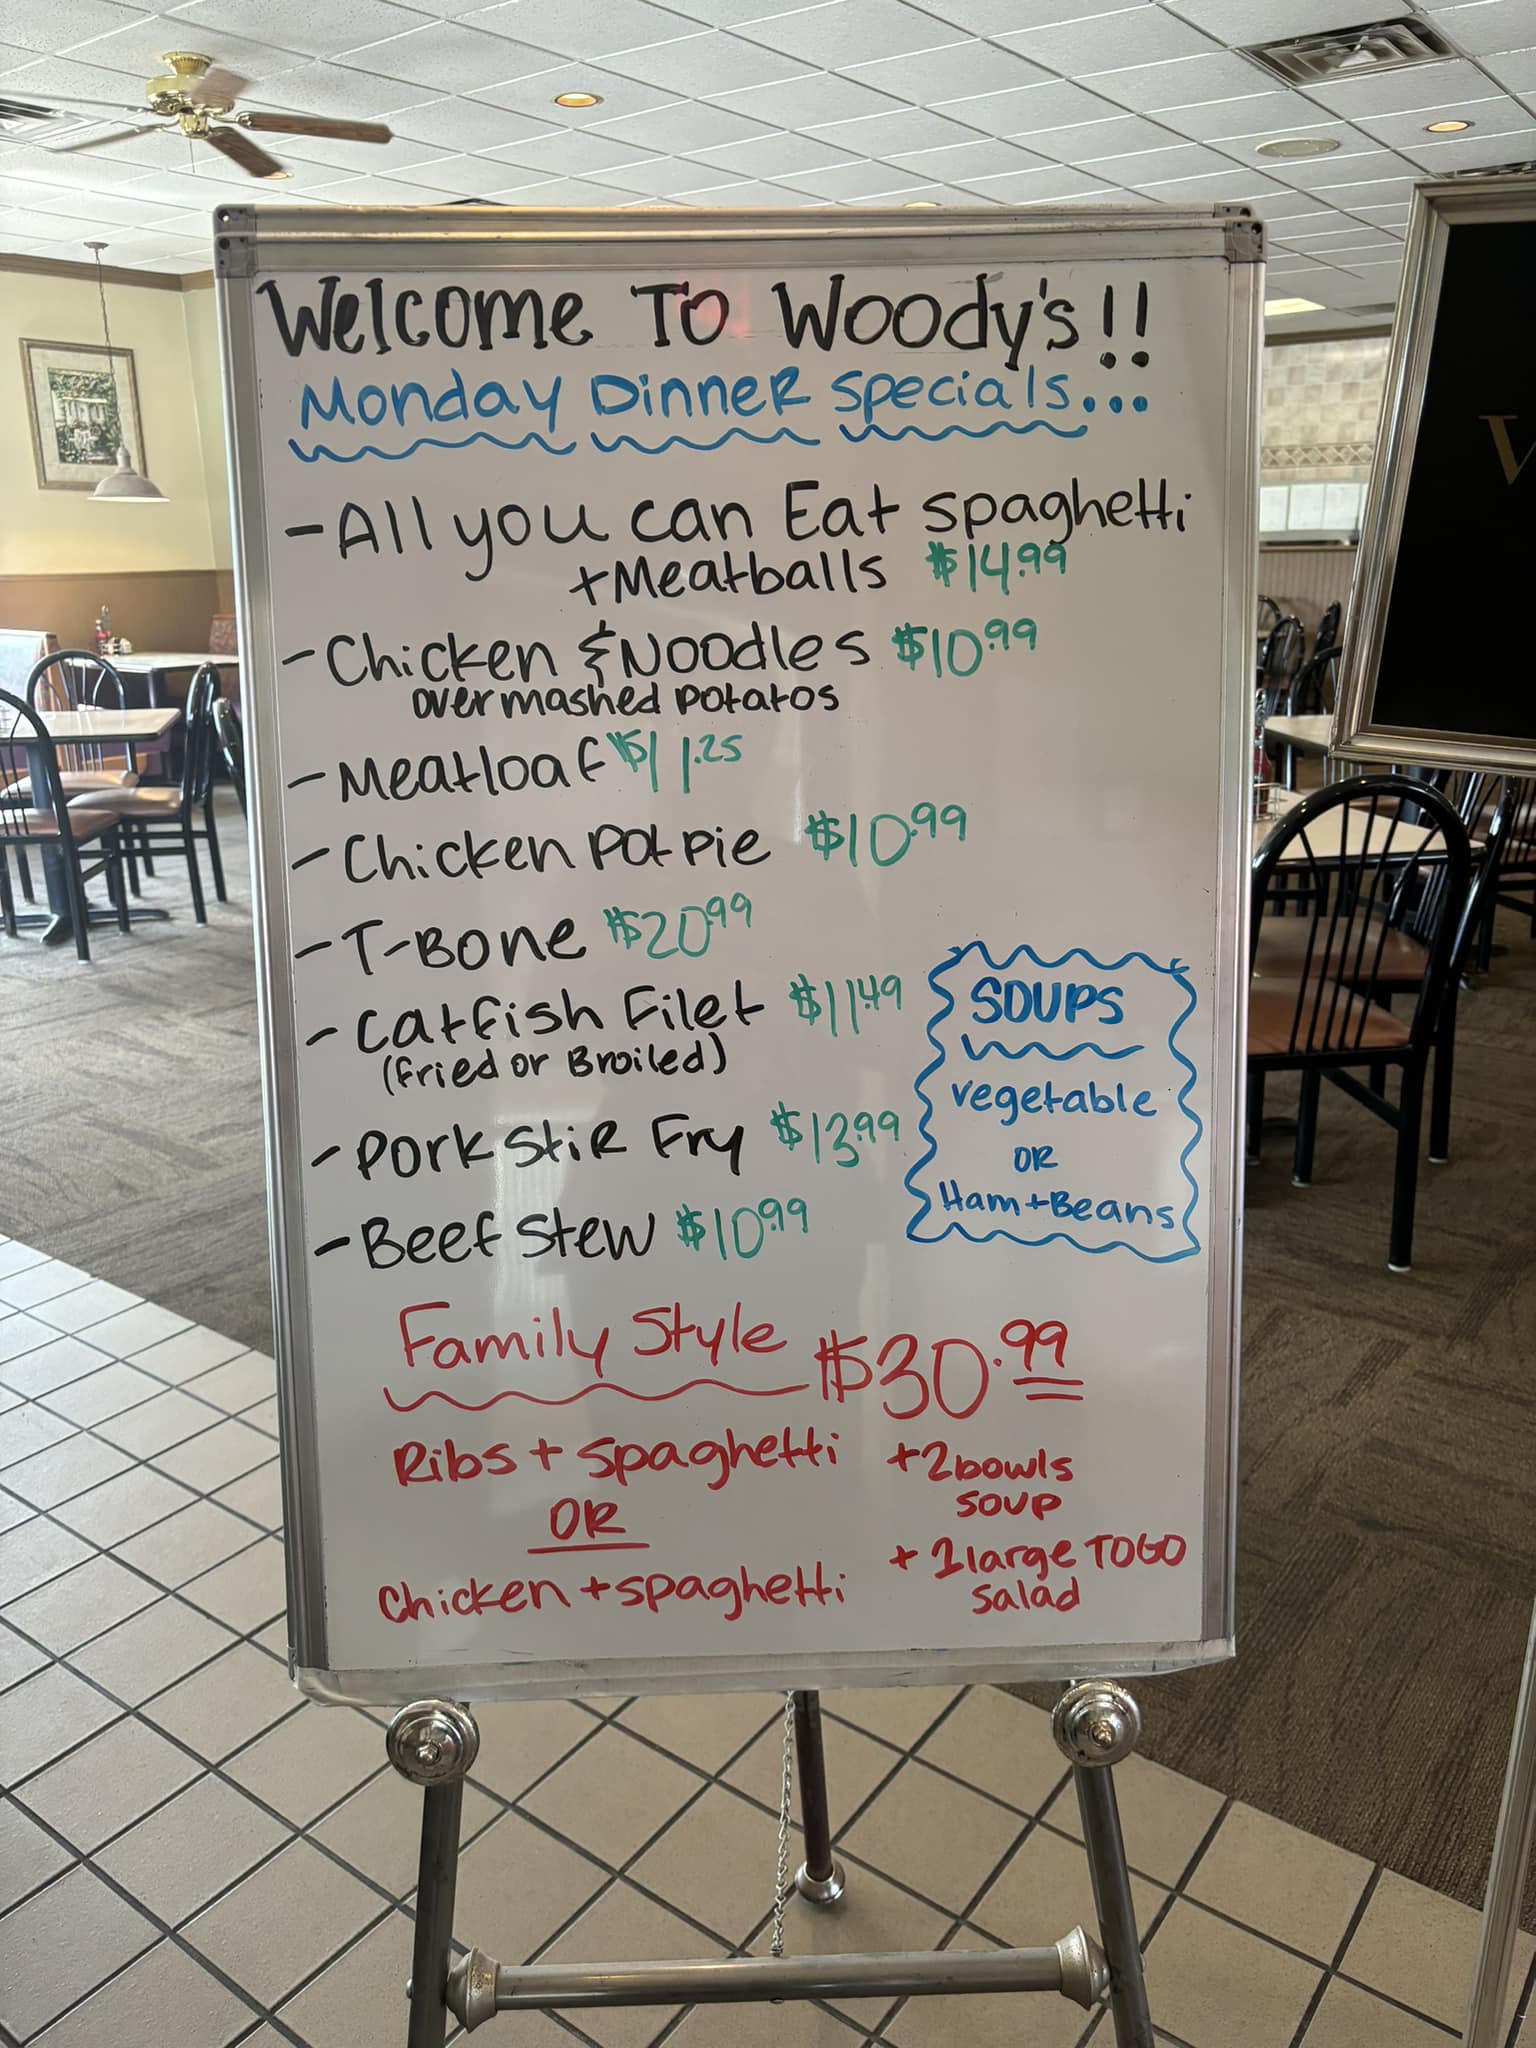 Welcome To Woody's!!
Monday Dinner Specials...
- All you can Eat spaghetti
+Meatballs $14.99
- Chicken & Noodles $10.99
over mashed potatos
- Meatloaf $11.25
- Chicken Pot Pie $10.99
- T-Bone $20.99
- Catfish Filet $11.49
(fried or Broiled)
- Pork Stir Fry $13.99
- Beef Stew $10.99
SOUPS
vegetable
OR
Ham+Beans
Family Style $30.99
Ribs + spaghetti
OR
Chicken + spaghetti
+2 bowls
soup
+ 1 large TOGO
salad
V